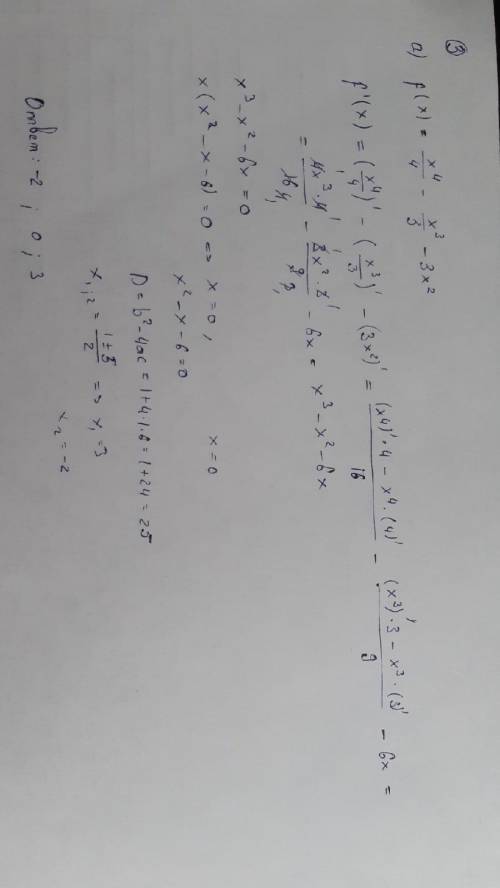 ③
а) f(x) = x⁴/4 - x³/3 - 3x²
f'(x) = (x⁴/4)' - (x³/3)' - (3x²)' = ((x4)'·4 - x⁴·(4)')/16 - ((x³)'·3 - x³·(3)')/9 - 6x =
= 4x³·4/16 - 3x²·3/9 - 6x = x³ - x² - 6x
x³ - x² - 6x = 0
x(x² - x - 6) = 0 => x = 0, x = 0
x² - x - 6 = 0
D = b² - 4ac = 1 + 4·1·6 = 1 + 24 = 25
x₁,₂ = (1 ± 5)/2 => x₁ = 3
x₂ = -2
Ответ: -2 ; 0 ; 3